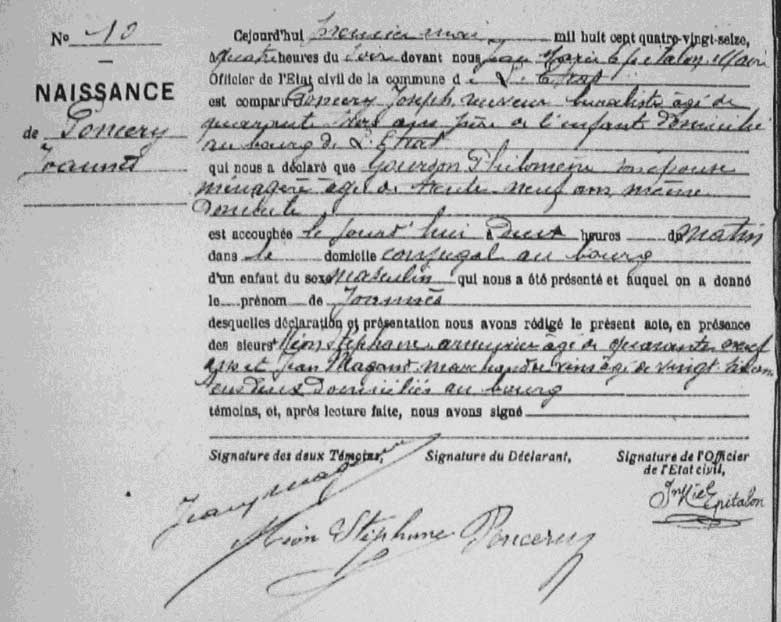 No 10
NAISSANCE
de Poncery
Joannès
Cejourd'hui premier mai mil huit cent quatre-vingt-seize,
à quatre heures du soir devant nous Jean Marie Epitalon, Maire
Officier de l'Etat civil de la commune d L'Etrat
est comparu Poncery Joseph, mineur buraliste âgé de
quarante trois ans père de l'enfant domicilié
au bourg de L'Etrat
qui nous a déclaré que Gourgon Philomène son épouse
ménagère âgée de trente neuf ans même
domicile
est accouchée le jourd'hui à deux heures du matin
dans le domicile conjugal au bourg
d'un enfant du sexe masculin qui nous a été présenté et auquel on a donné
le prénom de Joannès
desquelles déclaration et présentation nous avons rédigé le présent acte, en présence
des sieurs Mion Stéphane armurier âgé de quarante neuf
ans et Jean Magand marchand de vins âgé de vingt
tous deux domiciliés au bourg
témoins, et, après lecture faite, nous avons signé
Signature des deux Témoins, Signature du Déclarant, Signature de l'Officier
de l'Etat civil,
Jean Magand
Mion Stéphane Poncery
Epitalon